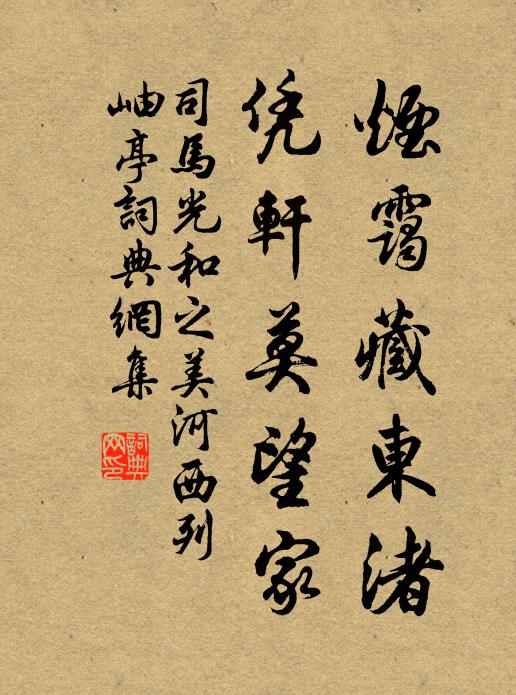 煙靄藏東渚
凭軒莫望家
司馬光和之美河西列
岫亭詞典網集
詞典
网印